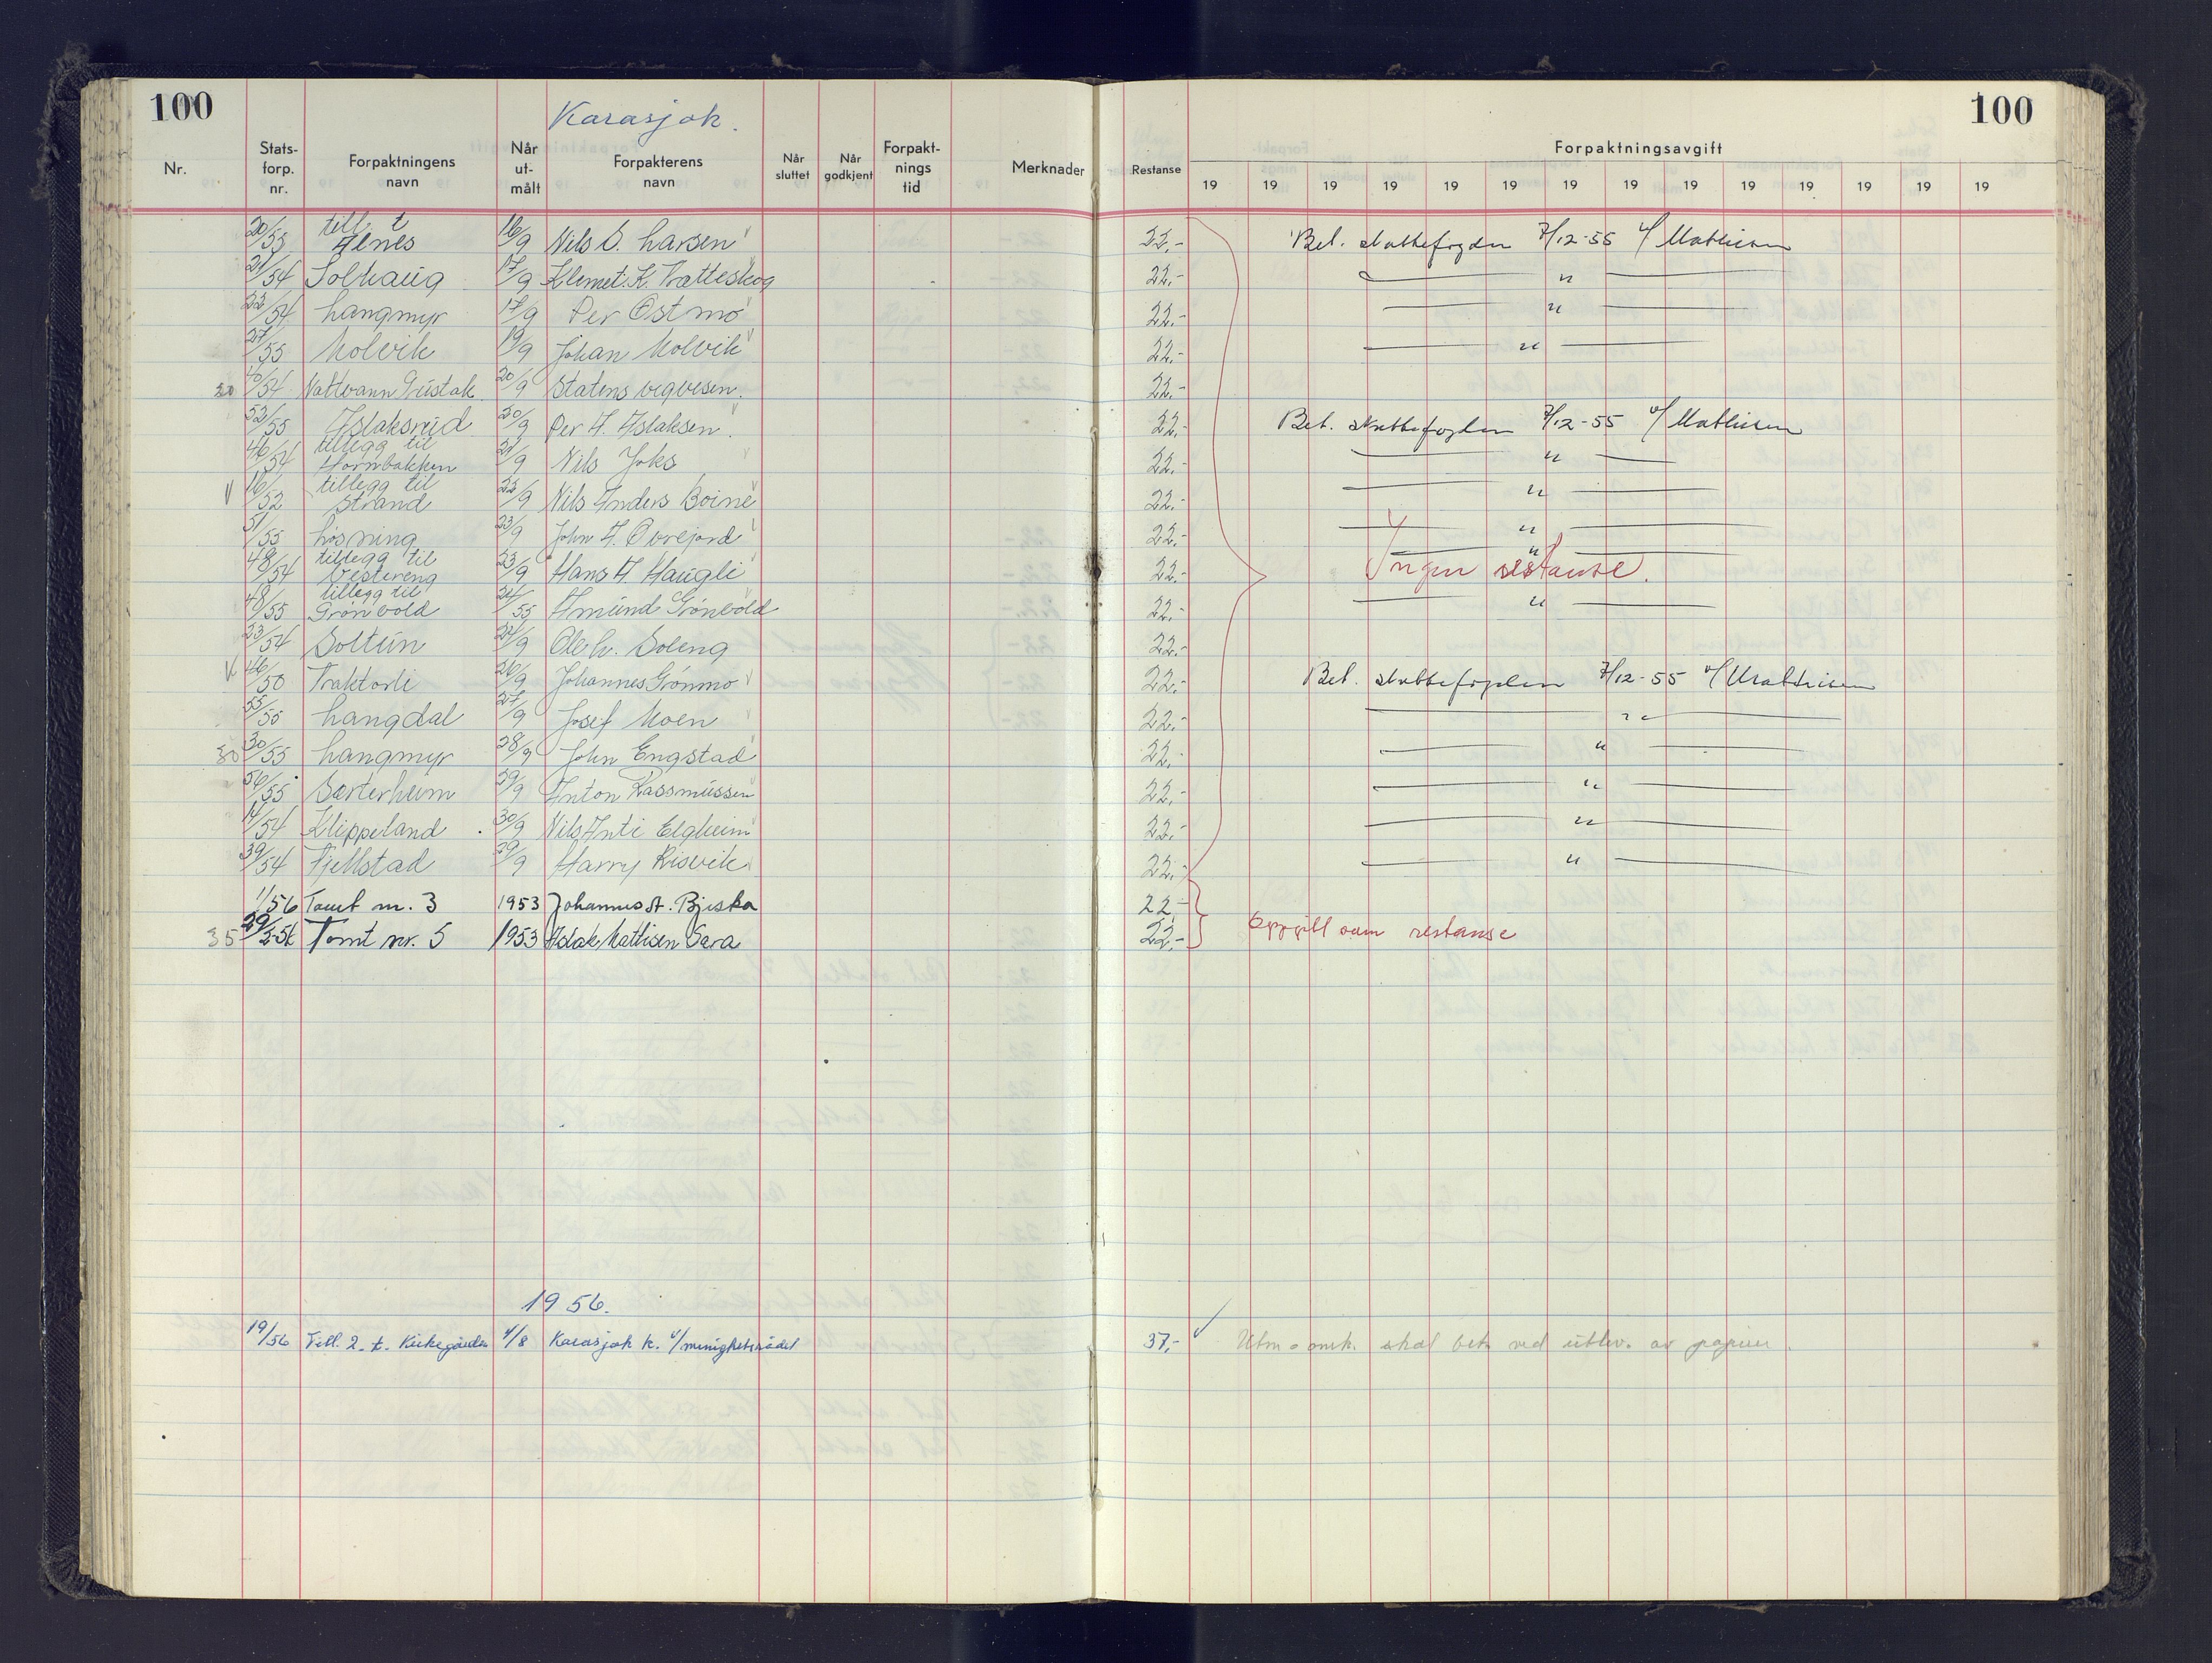 100
100
Karasjok.
Nr.
Stats-forp. nr.
Forpaktningens navn
Når ut-målt
Forpakterens navn
Når sluttet
Når godkjent
Forpakt-nings tid
Merknader
Restanse
Forpaktningsavgift
19 19 19 19 19 19 19 19 19 19 19 19 19 19
20/55 till. t Alnes 16/9 Nils S. Larsen 22,- Bet. skattefogden 7/12-55 v/ Mathisen
21/54 Solhaug 17/9 Klemet K. Tratteskog 22.- — " —
22/54 Langmyr 17/9 Per Østmo 22.- — " —
27/55 Molvik 19/9 Johan Molvik 22.- — " —
20 40/54 Nattvann Grustak 20/9 Statens vegvesen. 22.-
52/55 Aslaksrud 20/9 Per A. Aslaksen. 22.- Bet. skattefogden 7/12-55 v/ Mathisen
46/54 tillegg til Hornbakken 21/9 Nils Joks 22.- — " —
V 16/52 tillegg til Strand 22/9 Nils Anders Boine 22.- — " —
51/55 Løsning 23/9 John A. Øvrejord 22.- — " —
48/54 tillegg til Vestereng 23/9 Hans A. Haugli 22.- — " —
Ingen restanse.
48/55 tillegg til Grønvold 24/55 Amund Grønvold 22.- — " —
23/54 Soltun 24/9 Ole h. Soleng 22.-
V 46/50 Traktorli 26/9 Johannes Grønmo 22.- Bet. skattefogden 7/12-55 v/ Mathisen
55/55 Langdal 27/9 Josef Moen 22.- — " —
30 30/55 Langmyr 28/9 John Engstad 22.- — " —
56/55 Sæterheim 29/9 Anton Rassmussen 22.- — " —
14/54 Klippeland 30/9 Nils Anti Elgheim 22.- — " —
39/54 Fjellstad 29/9 Harry Risvik 22.- — " —
1/56 Tomt nr. 3 1953 Johannes A. Bjiska 22,-
35 29/2-56 Tomt nr. 5 1953 Aslak Mattisen Sara 22,- Oppgitt som restanse
1956.
19/56 Till. 2. t. Kirkegården 4/8 Karasjok k. v/ menighetsrådet 37,- Utm. omk. skal bet. ved utlev. av papirer.